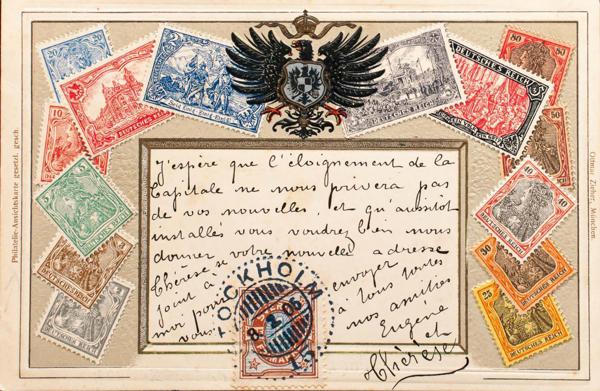 80
80
20
10
40
5
30
3
25
2
DEUTSCHES REICH
DEUTSCHES REICH
DEUTSCHES REICH
DEUTSCHES REICH
DEUTSCHES REICH
DEUTSCHES REICH
DEUTSCHES REICH
DEUTSCHES REICH
Philatelie-Ansichtskarte gesetzl. gesch.
Ottmar Zieher, München.
J'espère que l'éloignement de la
Capitale ne nous privera pas
de vos nouvelles, et qu'aussitot
installés vous voudrez bien nous
donner votre nouvelle adresse
Thérèse se
joint à
envoyer
moi pour
à tous toutes
vous
nos amitiés
Eugène
et
Thérèse
STOCKHOLM